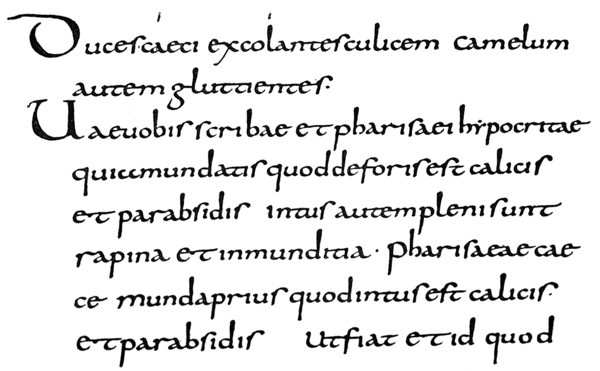 Duces caeci excolantes culicem camelum
autem gluttientes.
Uae uobis scribae et pharisaei hypocritae
quia mundatis quod deforis est calicis
et parabsidis intus autem pleni sunt
rapina et inmunditia · pharisaeae cae
ce munda prius quod intus est calicis.
et parabsidis ut fiat et id quod